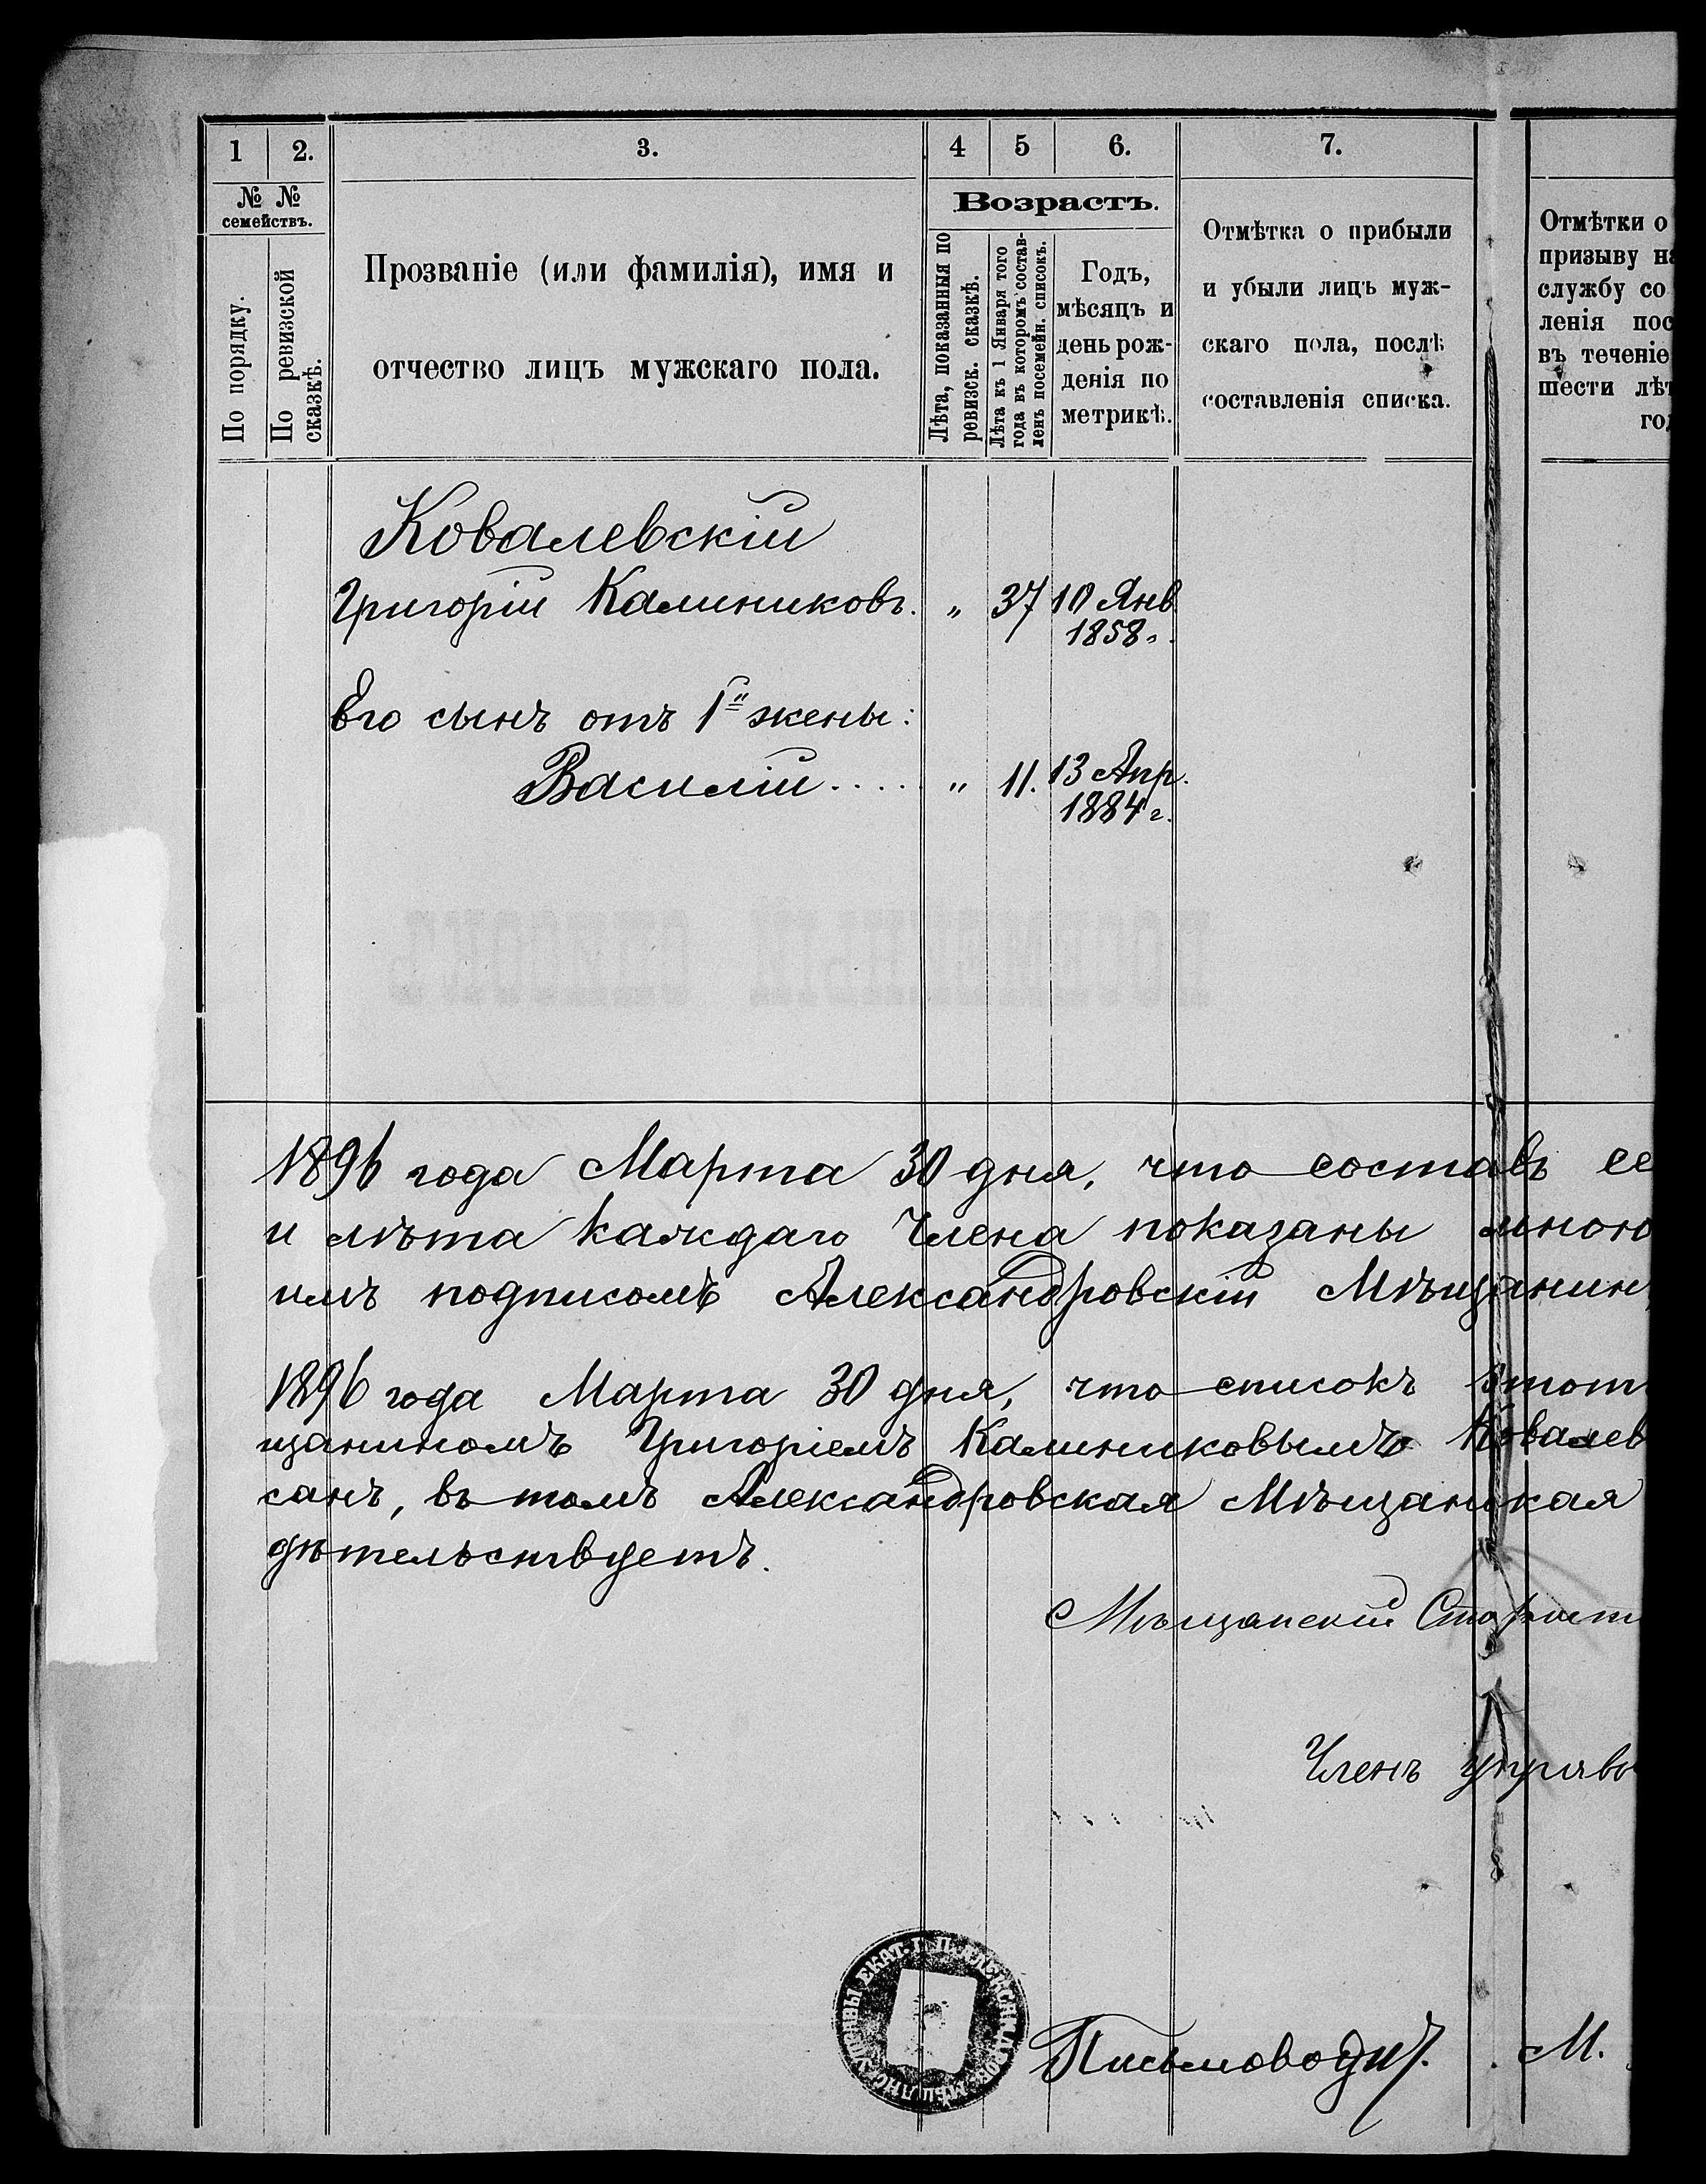 1 2. 3. 4 5 6. 7.
№ №
семействъ.
По порядку.
По ревизской
сказкѣ.
Прозваніе (или фамилія), имя и
отчество лицъ мужскаго пола.
Возрастъ.
Лѣта, показанныя по
ревизск. сказкѣ.
Лѣта къ 1 Января того
года въ которомъ состав-
ленъ посемейн. списокъ.
Годъ,
мѣсяцъ и
день рож-
денія по
метрикѣ.
Отмѣтка о прибыли
и убыли лицъ муж-
скаго пола, послѣ
составленія списка.
Отмѣтки о
призыву на
службу со
ленія пос
въ теченіе
шести лѣт
год
Ковалевскій
Григорій Калиниковъ. „ 37 10 Янв
1858г.
Его сынъ отъ 1й жены:
Василій..... „ 11. 13 Апр.
1884г.
1896 года Марта 30 дня, что составъ се
и лѣта каждаго члена показаны мною
имъ подписомъ Александровскій Мѣщанин
1896 года Марта 30 дня, что списокъ этот
щаниномъ Григоріемъ Калиниковымъ Ковалев
санъ, въ томъ Александровская Мѣщанская
дѣтельствуетъ.
Мѣщанскій Старост
Членъ управы
Письмовод. М.